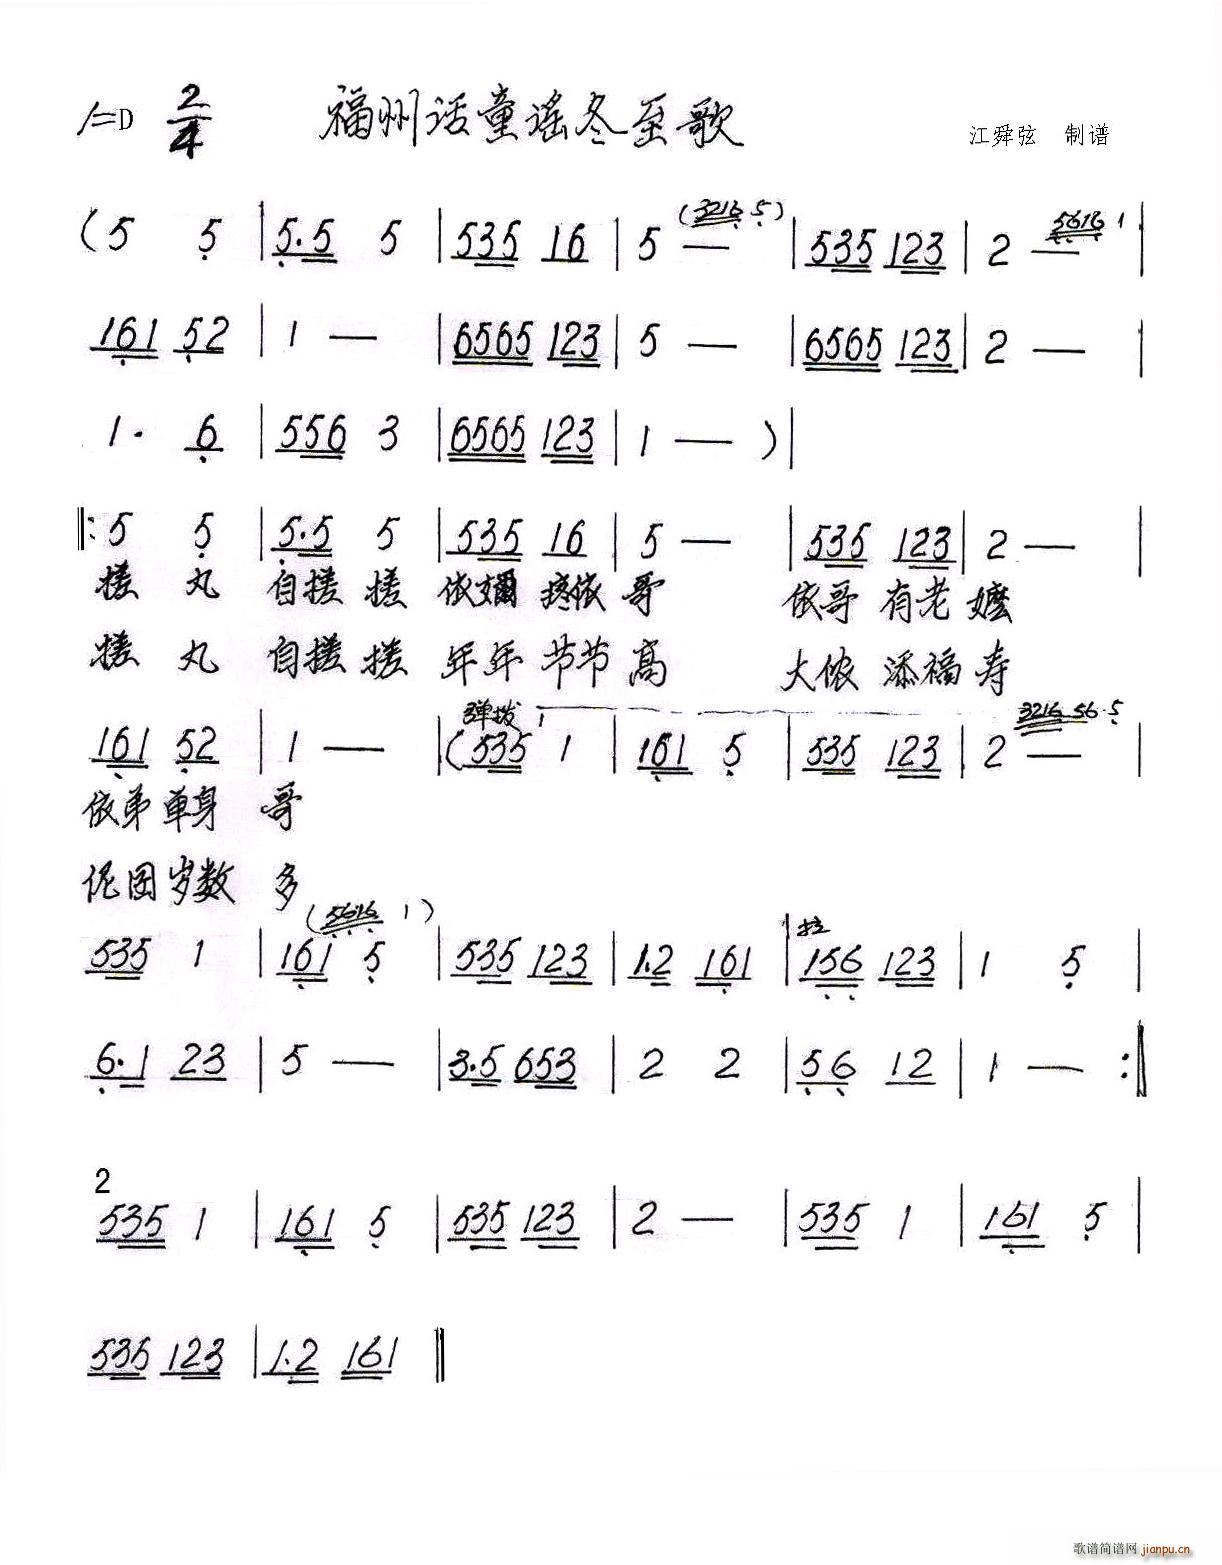 1=D 2/4 福州话童谣冬至歌
江舜弦 制谱
(3216 5) 5616 1
(5 5 | 5.5 5 | 535 16 | 5 — | 535 123 | 2 — |
161 52 | 1 — | 6565 123 | 5 — | 6565 123 | 2 — |
1. 6 | 556 3 | 6565 123 | 1 — ) |
‖: 5 5 | 5.5 5 | 535 16 | 5 — | 535 123 | 2 —  |
搓 丸 自搓 搓 依 疼依 哥 依哥 有老 嬷
搓 丸 自搓 搓 年年 节节 高 大侬 添福 寿
弹拨 3216 56.5
161 52 | 1 — | (535 1 | 161 5 | 535 123 | 2 — |
依弟 单身 哥
伲囝 岁数 多
(5616 1) 拉
535 1 | 161 5 | 535 123 | 1.2 161 | 156 123 | 1 5 |
6.1 23 | 5 — | 3.5 653 | 2 2 | 56 12 | 1 — :‖
2
535 1 | 161 5 | 535 123 | 2 — | 535 1 | 161 5 |
535 123 | 1.2 161 ‖
歌谱简谱网 jianpu.cn